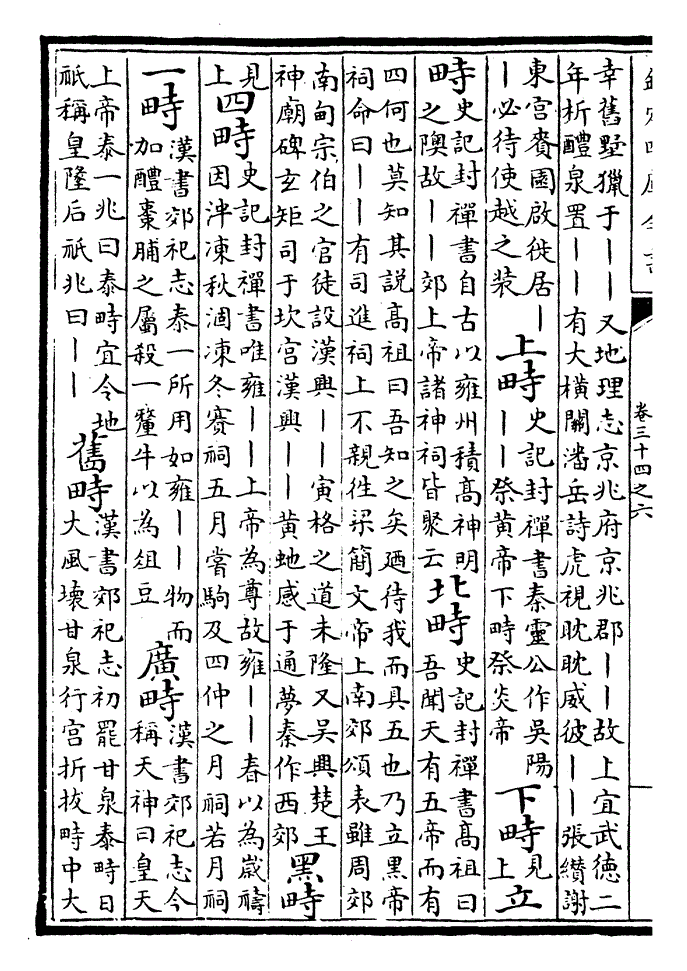 欽定四庫全書
卷三十四之六
幸舊墅獵于丨丨又地理志京兆府京兆郡丨丨故上宜武德二
年析醴泉置丨丨有大橫關潘岳詩虎視眈眈威彼丨丨張纘謝
東宫賚園啟徙居丨
丨必待使越之装
上畤
史記封禪書秦靈公作吳陽
丨丨祭黄帝下畤祭炎帝
下畤
見
上
立
畤
史記封禪書自古以雍州積髙神明
之隩故丨丨郊上帝諸神祠皆聚云
北畤
史記封禪書髙祖曰
吾聞天有五帝而有
四何也莫知其説髙祖曰吾知之矣廼待我而具五也乃立黒帝
祠命曰丨丨有司進祠上不親徃梁簡文帝上南郊頌表雖周郊
南甸宗伯之官徒設漢興丨丨寅格之道未隆又吳興楚王
神廟碑玄矩司于坎宫漢興丨丨黄虵感于通夢秦作西郊
黑畤
見
上
四畤
史記封禪書唯雍丨丨上帝為尊故雍丨丨春以為嵗禱
因泮凍秋涸凍冬賽祠五月嘗駒及四仲之月祠若月祠
一畤
漢書郊祀志泰一所用如雍丨丨物而
加醴棗脯之屬殺一犛牛以為俎豆
廣畤
漢書郊祀志今
稱天神曰皇天
上帝泰一兆曰泰畤宜令地
祇稱皇隆后祇兆曰丨丨
舊畤
漢書郊祀志初罷甘泉泰畤日
大風壞甘泉行宫折拔畤中大